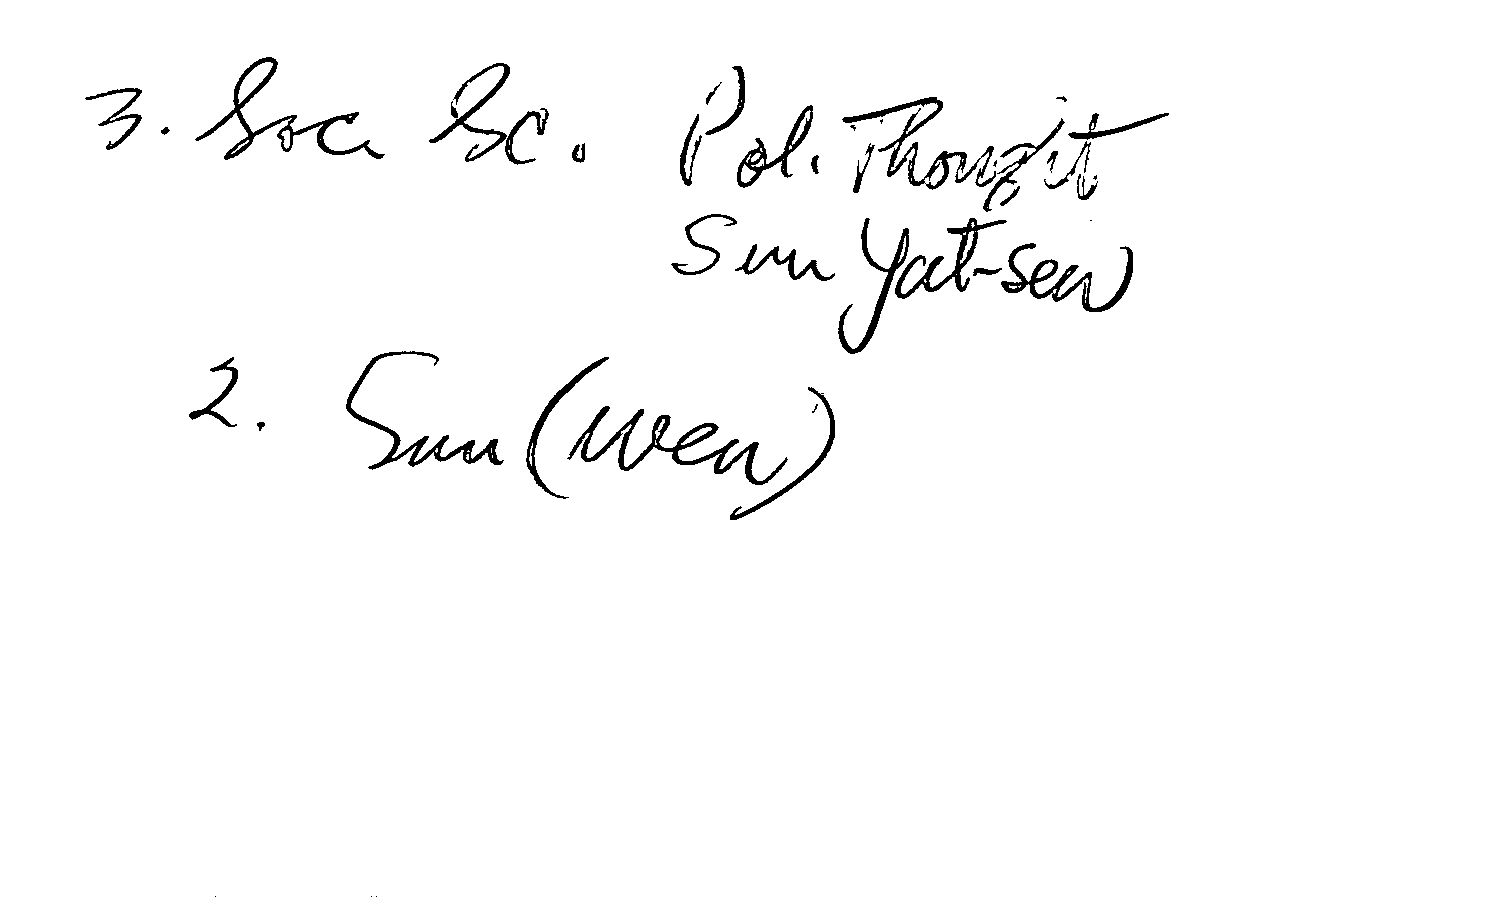 3. Soc. Sc. Pol. Thought
Sun Yat-sen
2. Sun (Wen)